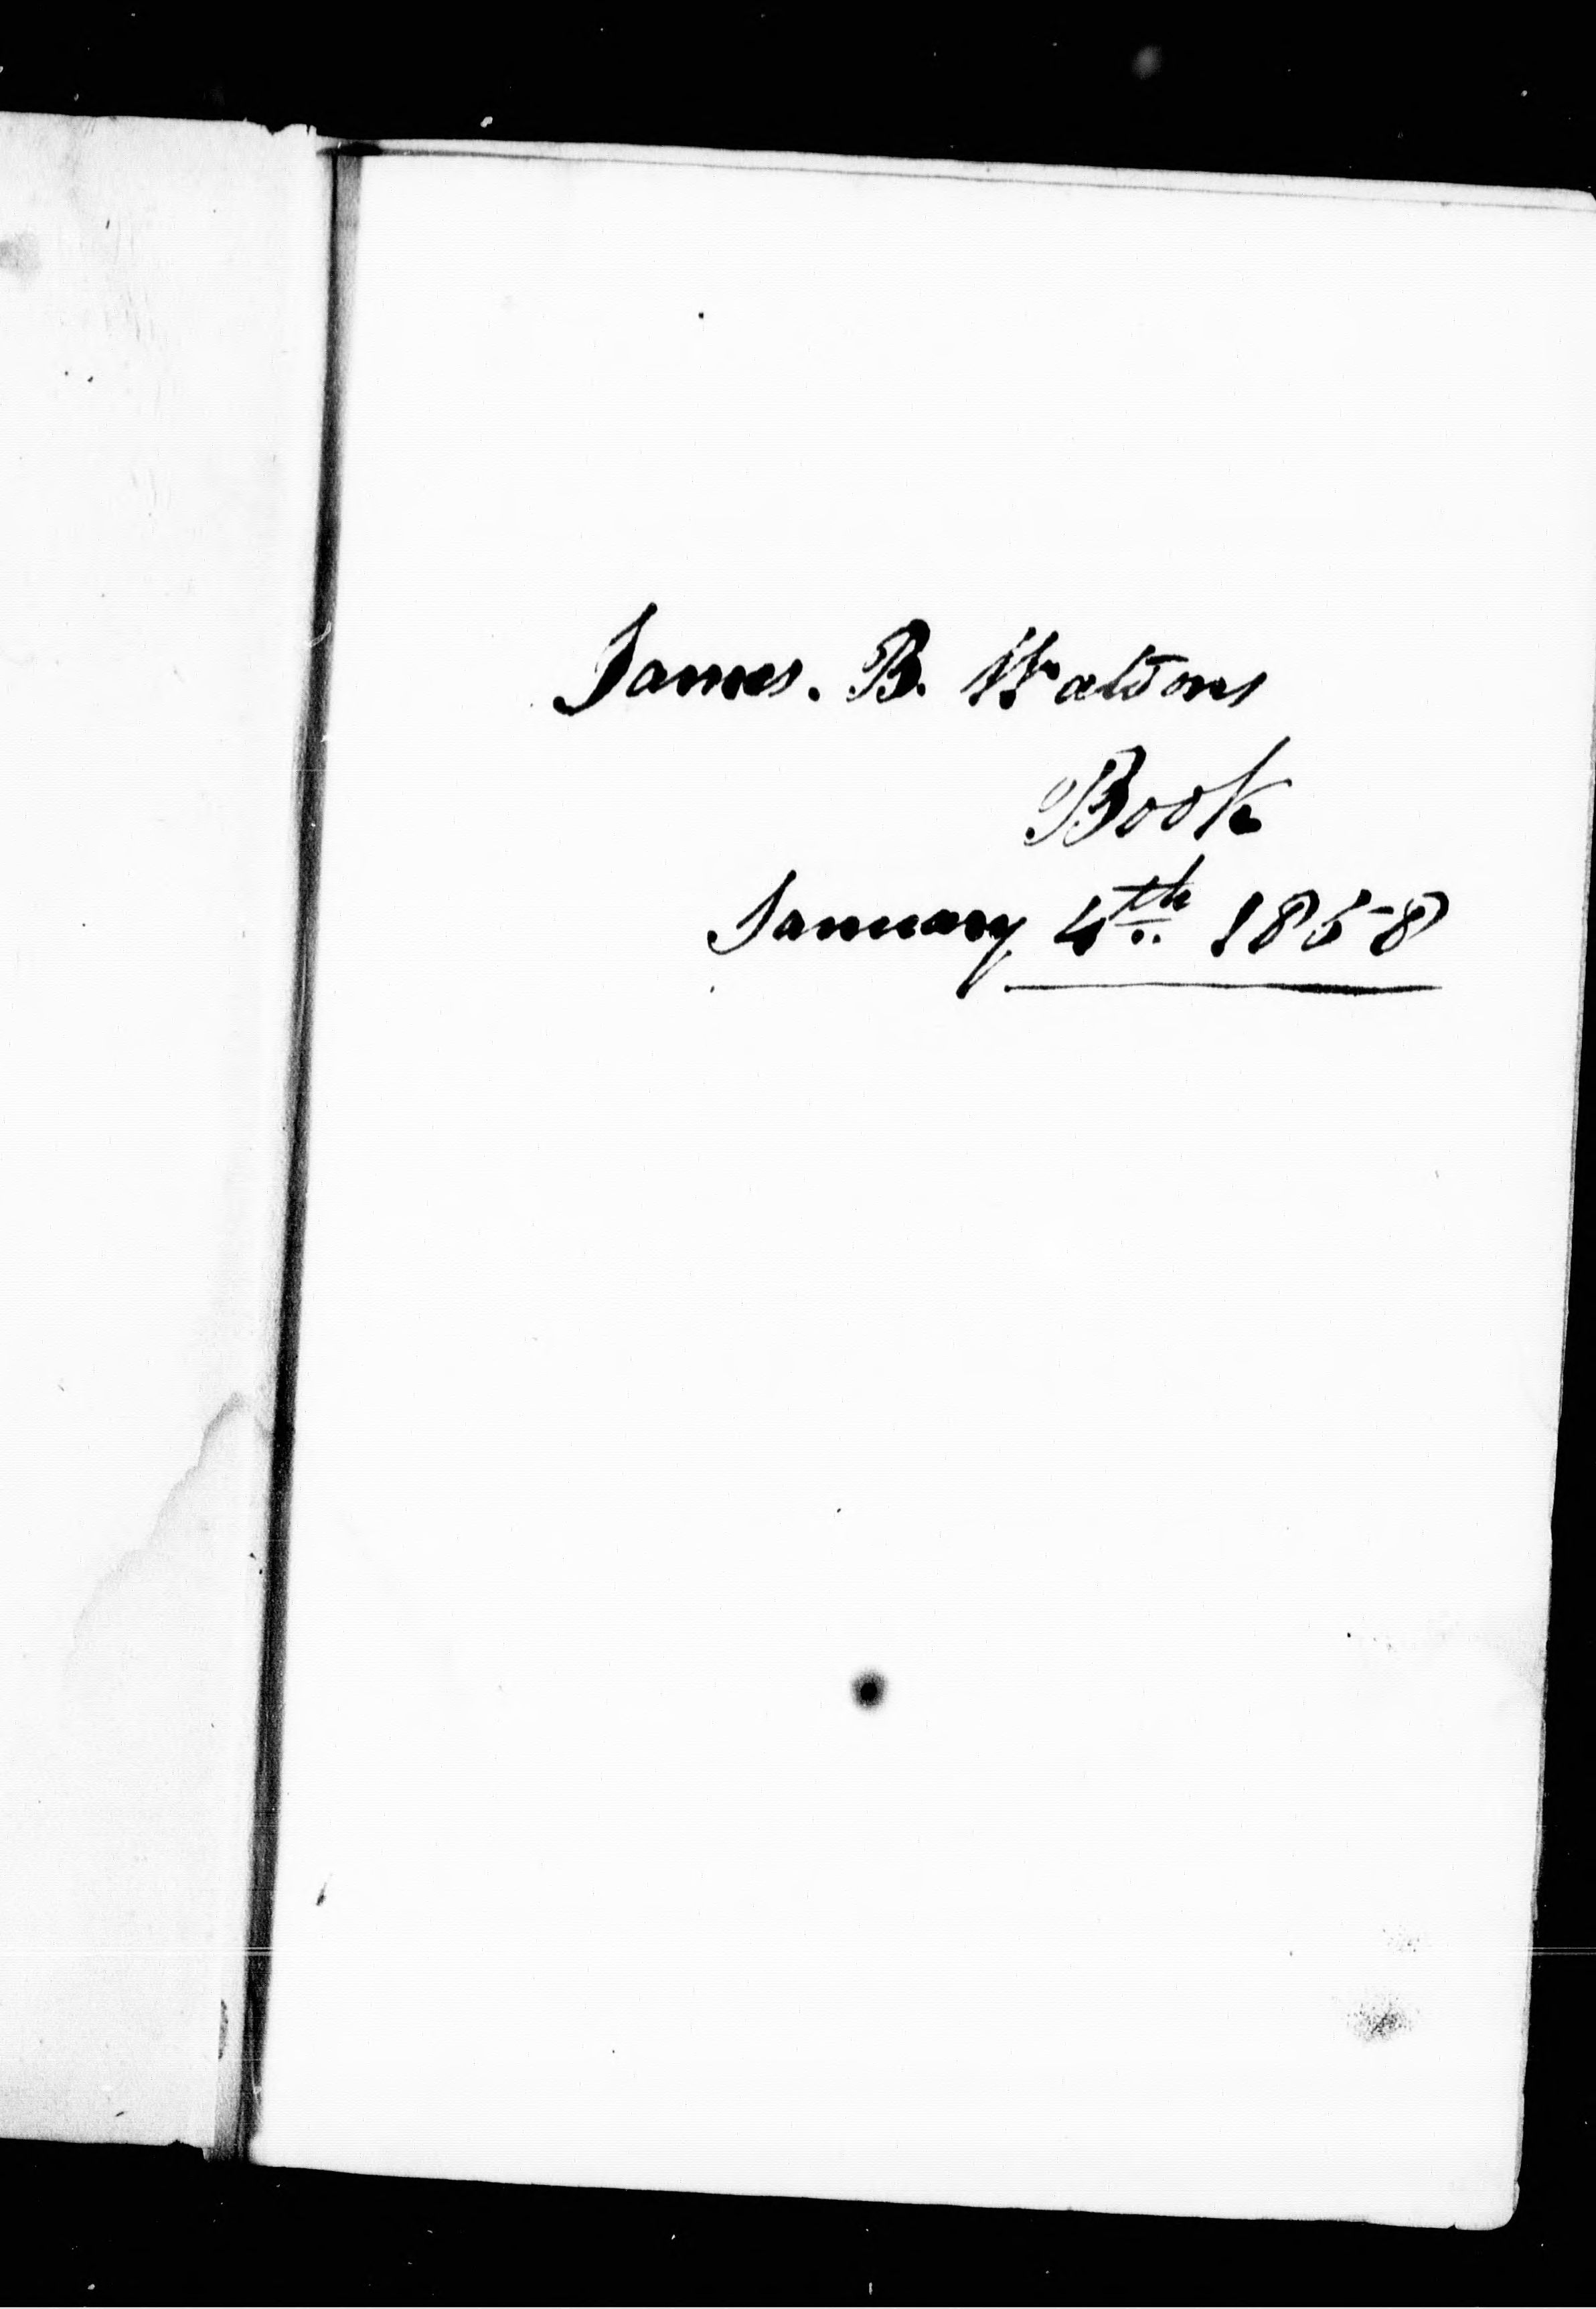 James. B. Watsons
Book
January 4th 1858